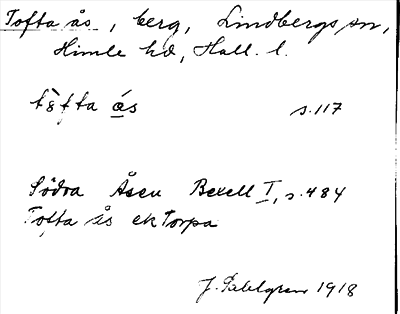 Tofta ås, berg, Lindbergs sn,
Himle hd, Hall. l.
tȣ̀fta ás s. 117
Södra Åsen Bexell I, s. 484
Tofta ås ek Torpa
J. Sahlgren 1918